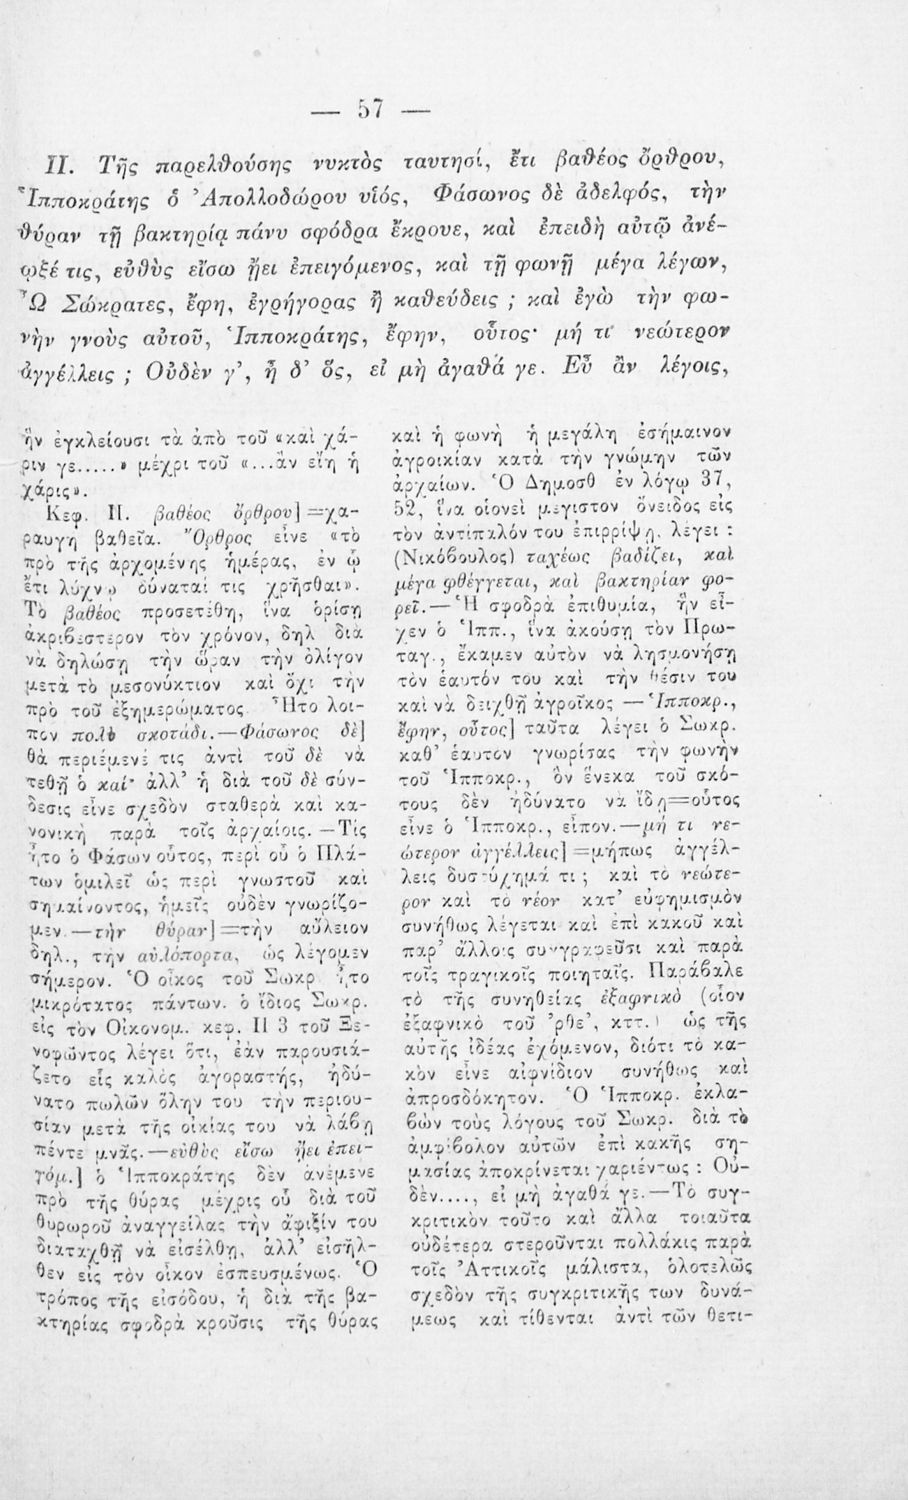 — 57 —
II. Τῆς παρελθούσης νυκτὸς ταυτησί, ἔτι βαθέος ὄρθρου,
Ἱπποκράτης ὁ Ἀπολλοδώρου υἱός, Φάσωνος δὲ ἀδελφός, τὴν
θύραν τῇ βακτηρίᾳ πάνυ σφόδρα ἔκρουε, καὶ ἐπειδὴ αὐτῷ ἀνέ-
ῳξέ τις, εὐθὺς εἴσω ᾔει ἐπειγόμενος, καὶ τῇ φωνῇ μέγα λέγων,
Ὦ Σώκρατες, ἔφη, ἐγρήγορας ἢ καθεύδεις ; καὶ ἐγὼ τὴν φω-
νὴν γνοὺς αὐτοῦ, Ἱπποκράτης, ἔφην, οὗτος· μή τι νεώτερον
ἀγγέλλεις ; Οὐδὲν γ’, ἦ δ’ ὅς, εἰ μὴ ἀγαθά γε. Εὖ ἂν λέγοις,
ἣν ἐγκλείουσι τὰ ἀπὸ τοῦ «καὶ χά-
ριν γε.....» μέχρι τοῦ «...ἂν εἴη ἡ
χάρις».
Κεφ. II. βαθέος ὄρθρου]=χα-
ραυγὴ βαθεῖα. Ὄρθρος εἶνε «τὸ
πρὸ τῆς ἀρχομένης ἡμέρας, ἐν ᾧ
ἔτι λύχνῳ δύναταί τις χρῆσθαι».
Τὸ βαθέος προσετέθη, ἵνα ὁρίσῃ
ἀκριβέστερον τὸν χρόνον, δηλ διὰ
νὰ δηλώσῃ τὴν ὥραν τὴν ὀλίγον
μετὰ τὸ μεσονύκτιον καὶ ὄχι τὴν
πρὸ τοῦ ἐξημερώματος. Ἦτο λοι-
πὸν πολὺ σκοτάδι.—Φάσωνος δὲ]
θὰ περιέμενέ τις ἀντὶ τοῦ δὲ νὰ
τεθῇ ὁ καί· ἀλλ’ ἡ διὰ τοῦ δὲ σύν-
δεσις εἶνε σχεδὸν σταθερὰ καὶ κα-
νονικὴ παρὰ τοῖς ἀρχαίοις. —Τίς
ἦτο ὁ Φάσων οὗτος, περὶ οὗ ὁ Πλά-
των ὁμιλεῖ ὡς περὶ γνωστοῦ καὶ
σημαίνοντος, ἡμεῖς οὐδὲν γνωρίζο-
μεν.—τὴν θύραν]=τὴν αὔλειον
δηλ., τὴν αὐλόπορτα, ὡς λέγομεν
σήμερον. Ὁ οἶκος τοῦ Σωκρ. ἦτο
μικρότατος πάντων. ὁ ἴδιος Σωκρ.
εἰς τὸν Οἰκονομ. κεφ. II 3 τοῦ Ξε-
νοφῶντος λέγει ὅτι, ἐὰν παρουσιά-
ζετο εἷς καλὸς ἀγοραστής, ἠδύ-
νατο πωλῶν ὅλην του τὴν περιου-
σίαν μετὰ τῆς οἰκίας του νὰ λάβῃ
πέντε μνᾶς.—εὐθὺς εἴσω ᾔει ἐπει-
γόμ.] ὁ Ἱπποκράτης δὲν ἀνέμενε
πρὸ τῆς θύρας μέχρις οὗ διὰ τοῦ
θυρωροῦ ἀναγγείλας τὴν ἄφιξίν του
διαταχθῇ νὰ εἰσέλθῃ, ἀλλ’ εἰσῆλ-
θεν εἰς τὸν οἶκον ἐσπευσμένως. Ὁ
τρόπος τῆς εἰσόδου, ἡ διὰ τῆς βα-
κτηρίας σφοδρὰ κροῦσις τῆς θύρας
καὶ ἡ φωνὴ ἡ μεγάλη ἐσήμαινον
ἀγροικίαν κατὰ τὴν γνώμην τῶν
ἀρχαίων. Ὁ Δημοσθ ἐν λόγῳ 37,
52, ἵνα οἱονεὶ μέγιστον ὄνειδος εἰς
τὸν ἀντίπαλόν του ἐπιρρίψῃ, λέγει :
(Νικόβουλος) ταχέως βαδίζει, καὶ
μέγα φθέγγεται, καὶ βακτηρίαν φο-
ρεῖ.—Ἡ σφοδρὰ ἐπιθυμία, ἣν εἶ-
χεν ὁ Ἱππ., ἵνα ἀκούσῃ τὸν Πρω-
ταγ., ἔκαμεν αὐτὸν νὰ λησμονήσῃ
τὸν ἑαυτόν του καὶ τὴν θέσιν του
καὶ νὰ δειχθῇ ἀγροῖκος —Ἱπποκρ.,
ἔφην, οὗτος] ταῦτα λέγει ὁ Σωκρ.
καθ’ ἑαυτὸν γνωρίσας τὴν φωνὴν
τοῦ Ἱπποκρ., ὃν ἕνεκα τοῦ σκό-
τους δὲν ἠδύνατο νὰ ἴδῃ=οὗτος
εἶνε ὁ Ἱπποκρ., εἶπον.—μή τι νε-
ώτερον ἀγγέλλεις]=μήπως ἀγγέλ-
λεις δυστύχημά τι ; καὶ τὸ νεώτε-
ρον καὶ τὸ νέον κατ’ εὐφημισμὸν
συνήθως λέγεται καὶ ἐπὶ κακοῦ καὶ
παρ’ ἄλλοις συγγραφεῦσι καὶ παρὰ
τοῖς τραγικοῖς ποιηταῖς. Παράβαλε
τὸ τῆς συνηθείας ἐξαφνικὸ (οἷον
ἐξαφνικὸ τοῦ ’ρθε’, κττ.) ὡς τῆς
αὐτῆς ἰδέας ἐχόμενον, διότι τὸ κα-
κὸν εἶνε αἰφνίδιον συνήθως καὶ
ἀπροσδόκητον. Ὁ Ἱπποκρ. ἐκλα-
βὼν τοὺς λόγους τοῦ Σωκρ. διὰ τὸ
ἀμφίβολον αὐτῶν ἐπὶ κακῆς ση-
μασίας ἀποκρίνεται χαριέντως : Οὐ-
δὲν...., εἰ μὴ ἀγαθά γε.—Τὸ συγ-
κριτικὸν τοῦτο καὶ ἄλλα τοιαῦτα
οὐδέτερα στεροῦνται πολλάκις παρὰ
τοῖς Ἀττικοῖς μάλιστα, ὁλοτελῶς
σχεδὸν τῆς συγκριτικῆς των δυνά-
μεως καὶ τίθενται ἀντὶ τῶν θετι-